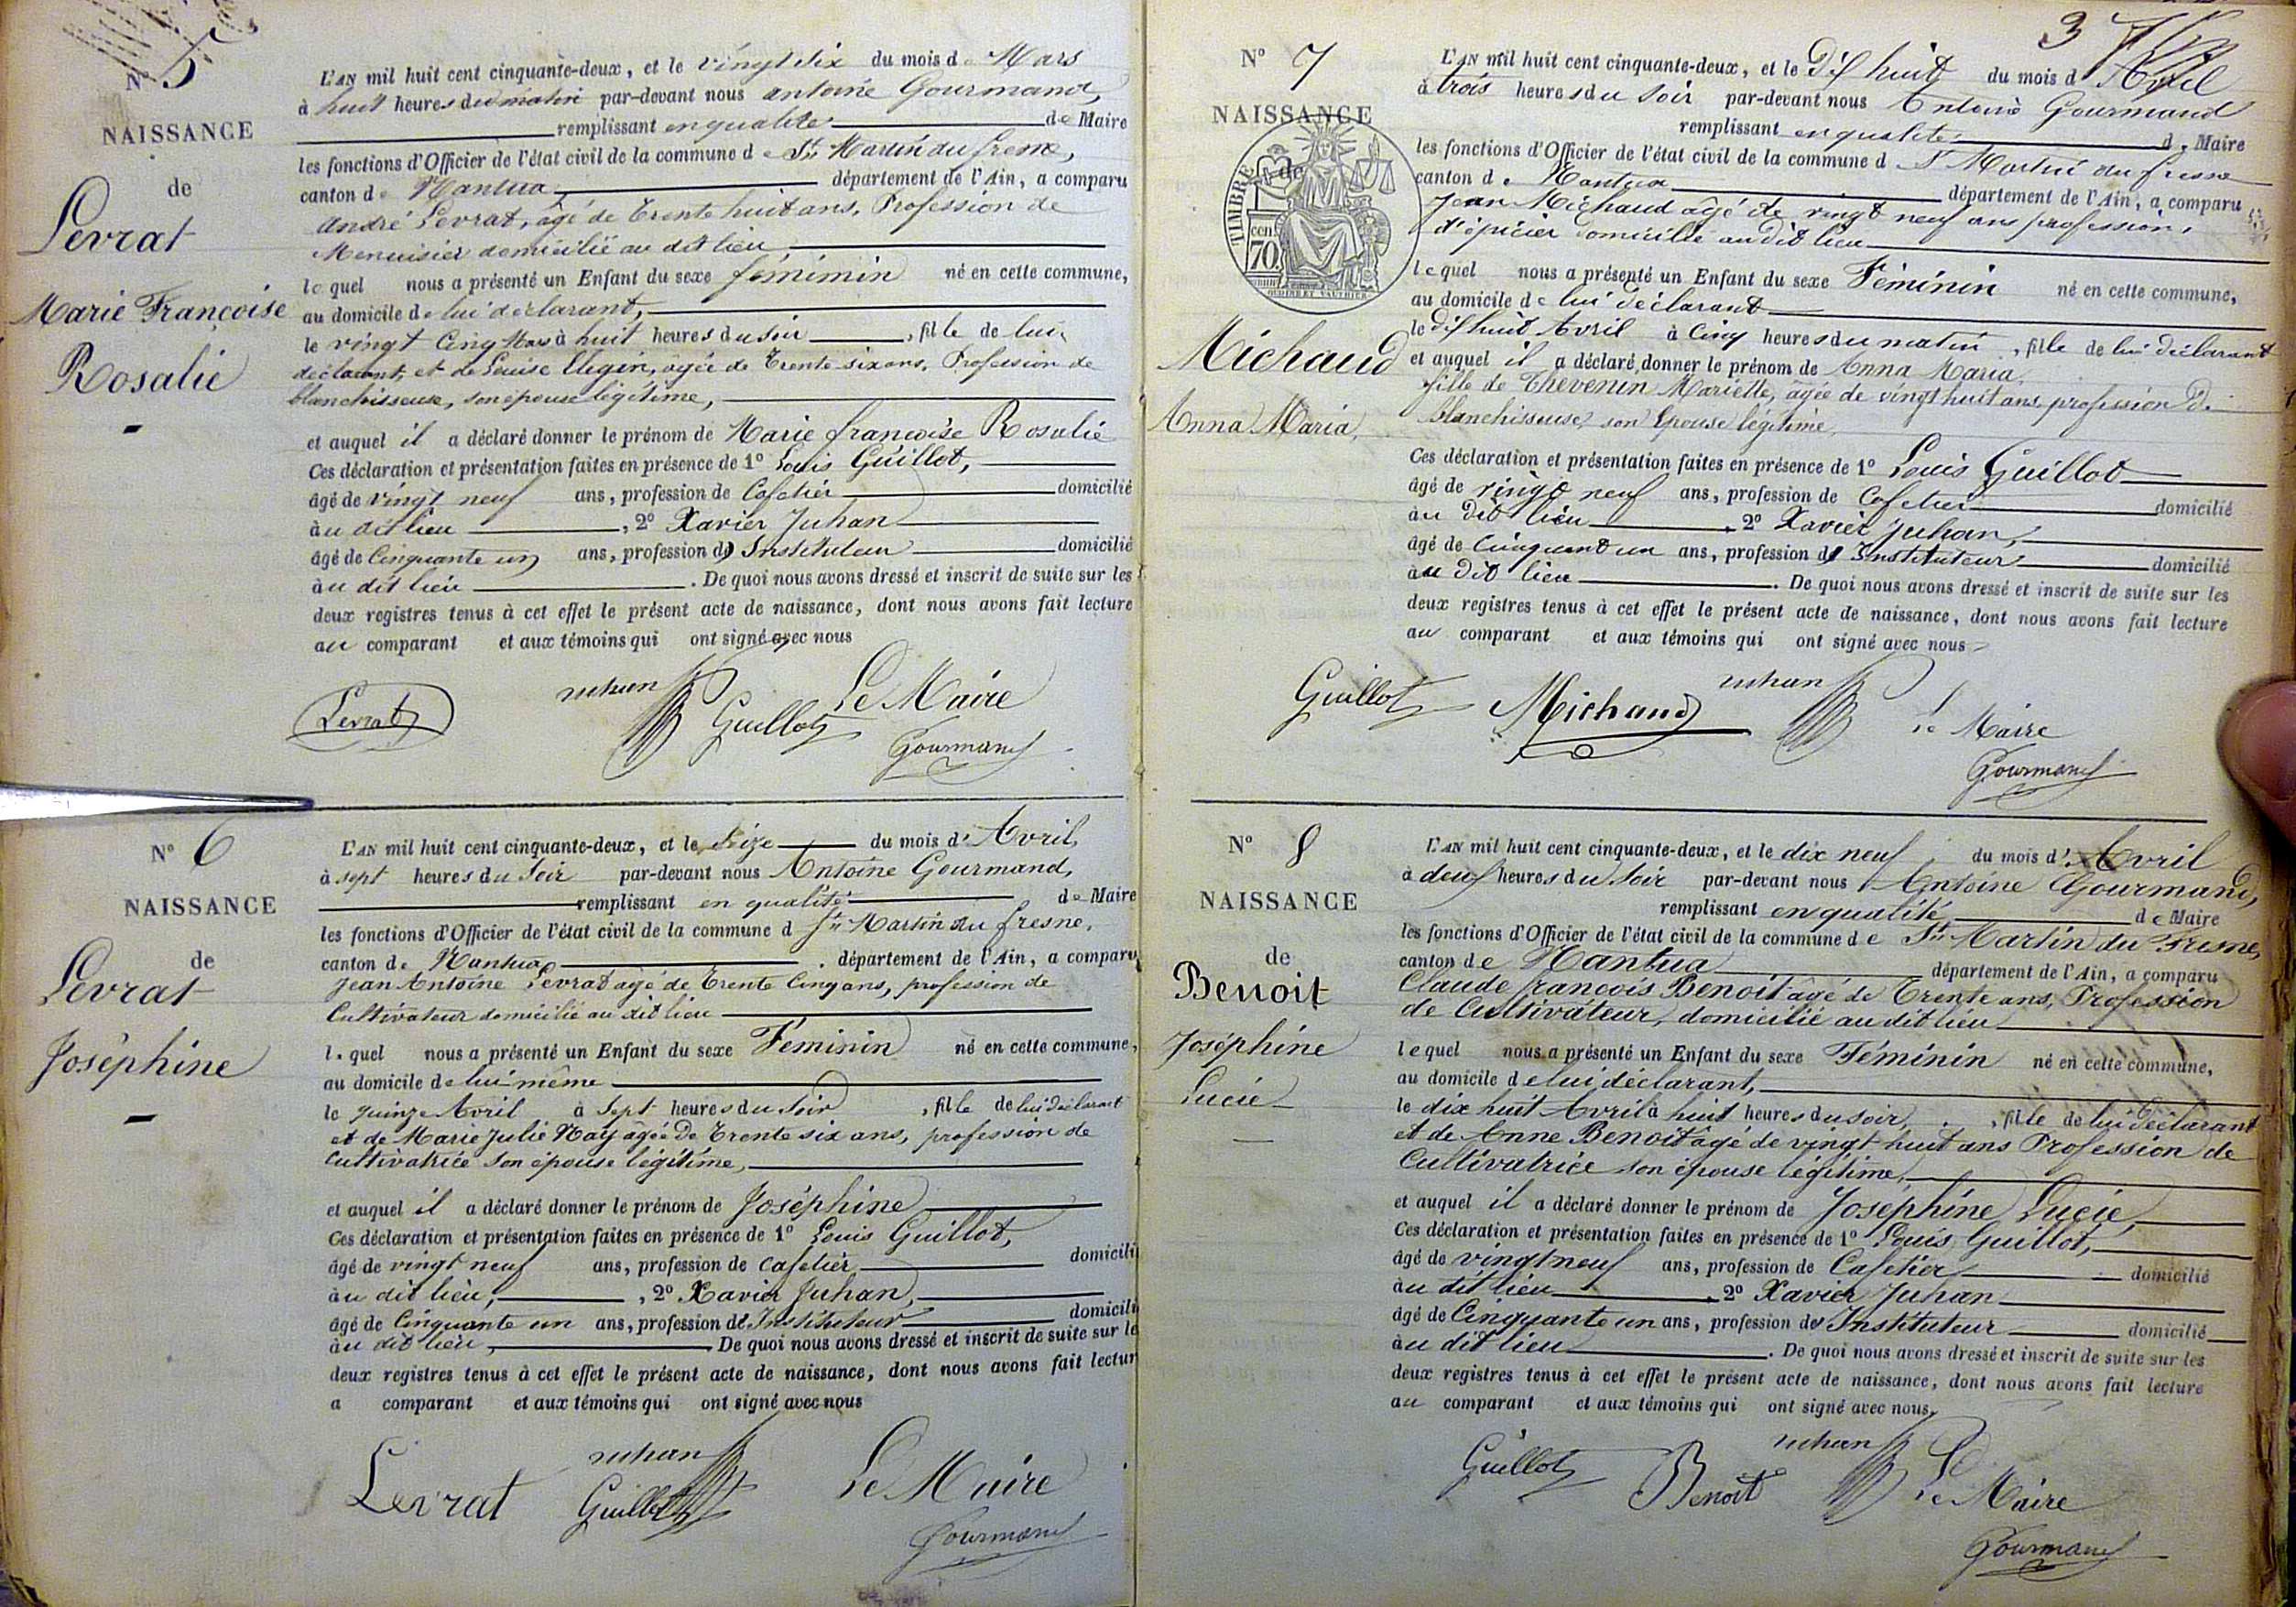 N° 5
NAISSANCE
de
Levrat
Marie Françoise
Rosalie
L'AN mil huit cent cinquante-deux, et le vingt six du mois de Mars
à huit heures du matin par-devant nous antoine Gourmand,
remplissant en qualité de Maire
les fonctions d'Officier de l'état civil de la commune de St Martin du fresne,
canton de Nantua département de l'Ain, a comparu
andré Levrat, âgé de Trente huit ans, Profession de
Menuisier domicilié au dit lieu
lequel nous a présenté un Enfant du sexe féminin né en cette commune,
au domicile de lui déclarant,
le vingt Cinq Mars à huit heures du soir, fille de lui
déclarant, et de Louise Elegin, âgée de Trente six ans, Profession de
blanchisseuse, son épouse légitime,
et auquel il a déclaré donner le prénom de Marie francoise Rosalie
Ces déclaration et présentation faites en présence de 1° Louis Guillot,
âgé de vingt neuf ans, profession de Cafetier domicilié
au dit lieu, 2° Xavier Juhan
âgé de Cinquante un ans, profession d' Instituteur domicilié
au dit lieu. De quoi nous avons dressé et inscrit de suite sur les
deux registres tenus à cet effet le présent acte de naissance, dont nous avons fait lecture
au comparant et aux témoins qui ont signé avec nous
Levrat juhan Guillot Le Maire
Gourmand
N° 6
NAISSANCE
de
Levrat
Joséphine
L'AN mil huit cent cinquante-deux, et le Seize du mois d' Avril,
à sept heures du Soir par-devant nous Antoine Gourmand,
remplissant en qualité de Maire
les fonctions d'Officier de l'état civil de la commune d St Martin du fresne,
canton de Nantua. département de l'Ain, a comparu
Jean Antoine Levrat agé de Trente Cinq ans, profession de
Cultivateur domicilié au dit lieu
lequel nous a présenté un Enfant du sexe Féminin né en cette commune,
au domicile de lui même
le quinze Avril à Sept heures du Soir, fille de lui déclarant
et de Marie Julie Nay âgée De Trente six ans, profession de
cultivatrice son épouse légitime,
et auquel il a déclaré donner le prénom de Joséphine
Ces déclaration et présentation faites en présence de 1° Louis Guillot,
âgé de vingt neuf ans, profession de Cafetier domicili
au dit lieu, , 2° Xavier Juhan,
âgé de Cinquante un ans, profession d' Instituteur domicili
au dit lieu, De quoi nous avons dressé et inscrit de suite sur le
deux registres tenus à cet effet le présent acte de naissance, dont nous avons fait lectur
a comparant et aux témoins qui ont signé avec nous
Levrat juhan Guillot Le Maire
Gourmand
3
N° 7
NAISSANCE
de
TIMBRE
cen
70
Michaud
Anna Maria,
L'AN mil huit cent cinquante-deux, et le Dix huit du mois d' Avril
à trois heures du Soir par-devant nous Antoine Gourmand
remplissant en qualité de Maire
les fonctions d'Officier de l'état civil de la commune d St Martin du fresne
canton de Nantua département de l'Ain, a comparu
Jean Michaud âgé de vingt neuf ans profession,
d'épicier domicilié au dit lieu
lequel nous a présenté un Enfant du sexe Féminin né en cette commune,
au domicile de lui déclarant
le dix huit Avril à Cinq heures du matin, fille de lui déclarant
et auquel il a déclaré donner le prénom de Anna Maria,
fille de Thevenin Mariette, âgée de vingt huit ans profession De
blanchisseuse son Epouse légitime,
Ces déclaration et présentation faites en présence de 1° Louis Guillot
âgé de vingt neuf ans, profession de Cafetier domicilié
au dit lieu, 2° Xavier Juhan,
âgé de cinquant un ans, profession d' Instituteur domicilié
au dit lieu. De quoi nous avons dressé et inscrit de suite sur les
deux registres tenus à cet effet le présent acte de naissance, dont nous avons fait lecture
au comparant et aux témoins qui ont signé avec nous
Guillot Michaud juhan Le Maire
Gourmand
N° 8
NAISSANCE
de
Benoit
Joséphine
Lucie
L'AN mil huit cent cinquante-deux, et le dix neuf du mois d' Avril
à deux heures du Soir par-devant nous Antoine Gourmand,
remplissant en qualité de Maire
les fonctions d'Officier de l'état civil de la commune de St Martin du Fresne,
canton de Nantua département de l'Ain, a comparu
Claude françois Benoit âgé de Trente ans, Profession
de Cultivateur, domicilié au dit lieu
lequel nous a présenté un Enfant du sexe Féminin né en cette commune,
au domicile de lui déclarant,
le dix huit Avril à huit heures du soir, , fille de lui déclarant
et de Anne Benoit âgé de vingt huit ans Profession de
Cultivatrice son épouse légitime,
et auquel il a déclaré donner le prénom de Joséphine Lucie,
Ces déclaration et présentation faites en présence de 1° Louis Guillot,
âgé de vingt neuf ans, profession de Cafetier domicilié
au dit lieu, 2° Xavier Juhan
âgé de Cinquante un ans, profession d' Instituteur domicilié
au dit lieu. De quoi nous avons dressé et inscrit de suite sur les
deux registres tenus à cet effet le présent acte de naissance, dont nous avons fait lecture
au comparant et aux témoins qui ont signé avec nous.
Guillot Benoit juhan Le Maire
Gourmand